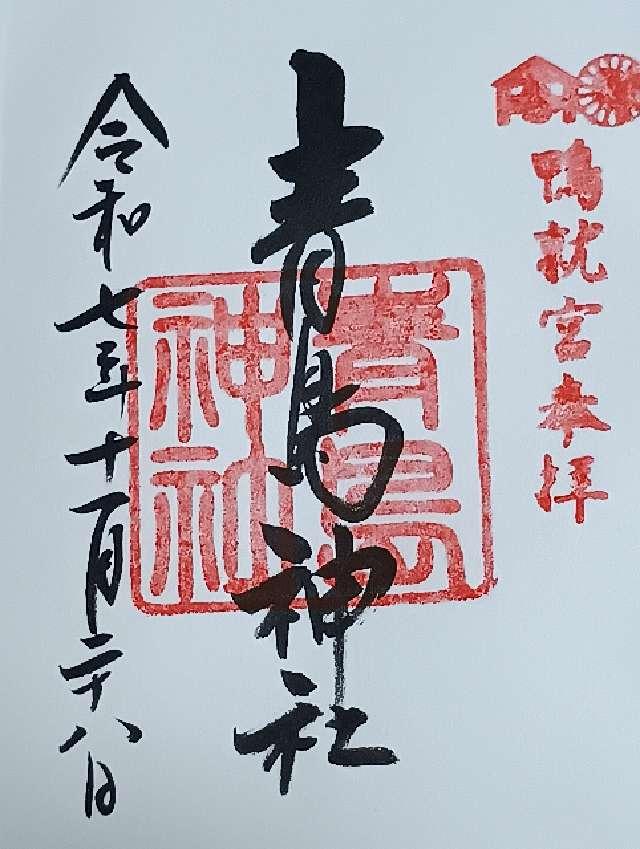 鴨就宮奉拝
青島神社
青島神社
令和七年十一月二十八日